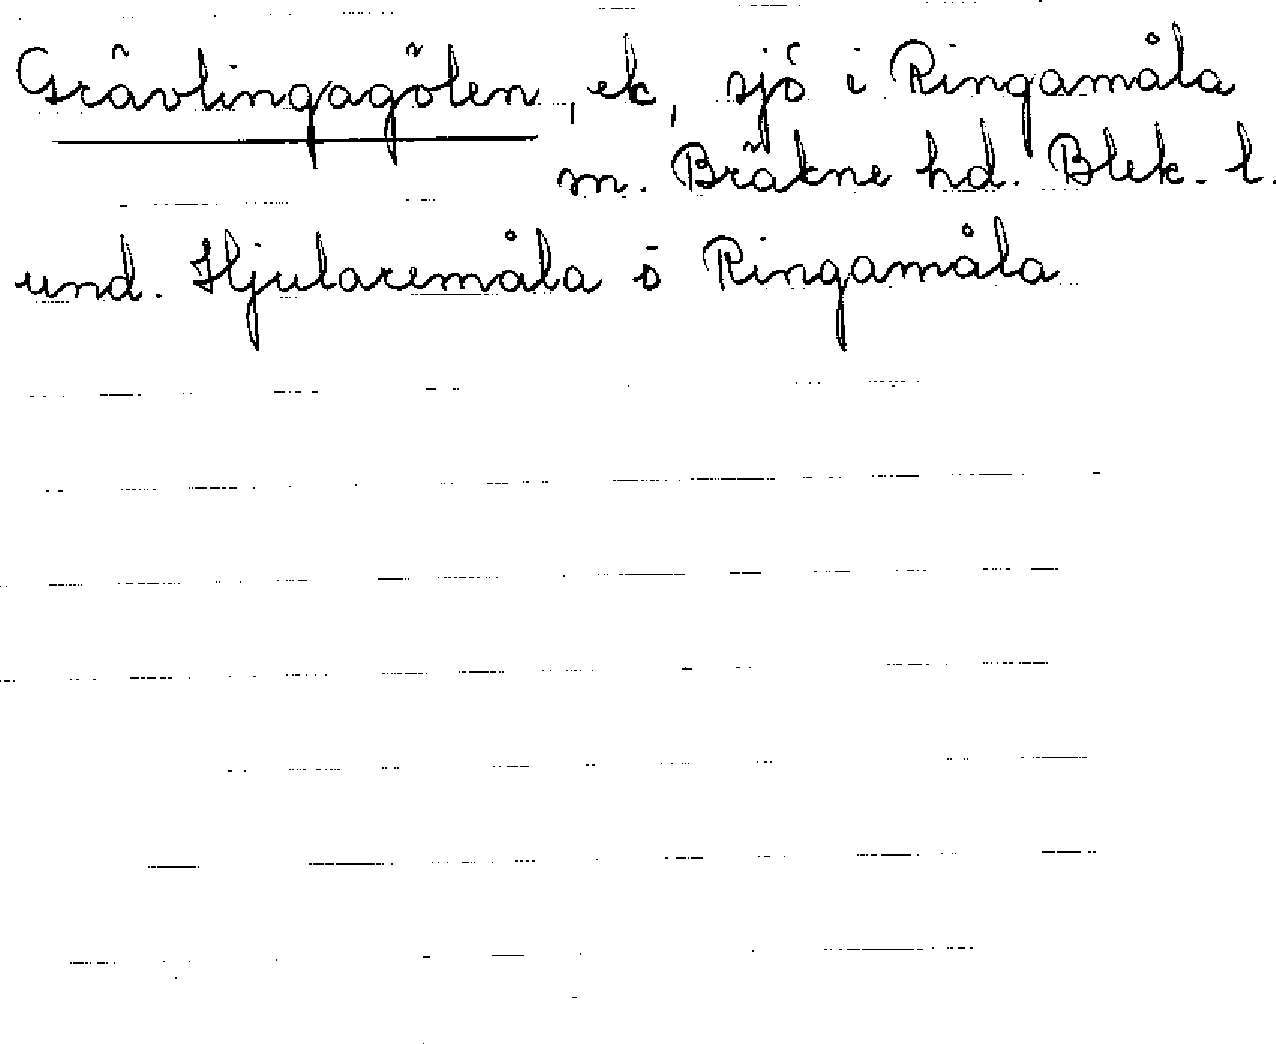 Grävlingagölen, ek, sjö i Ringamåla
m. Bräkne hd. Blek. l.
und. Hjularemåla ö Ringamåla